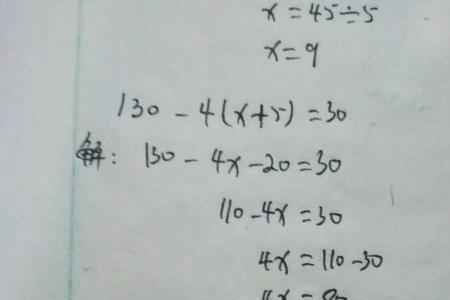 x=45÷5
x=9
130-4(x+5)=30
解:130-4x-20=30
110-4x=30
4x=110-30